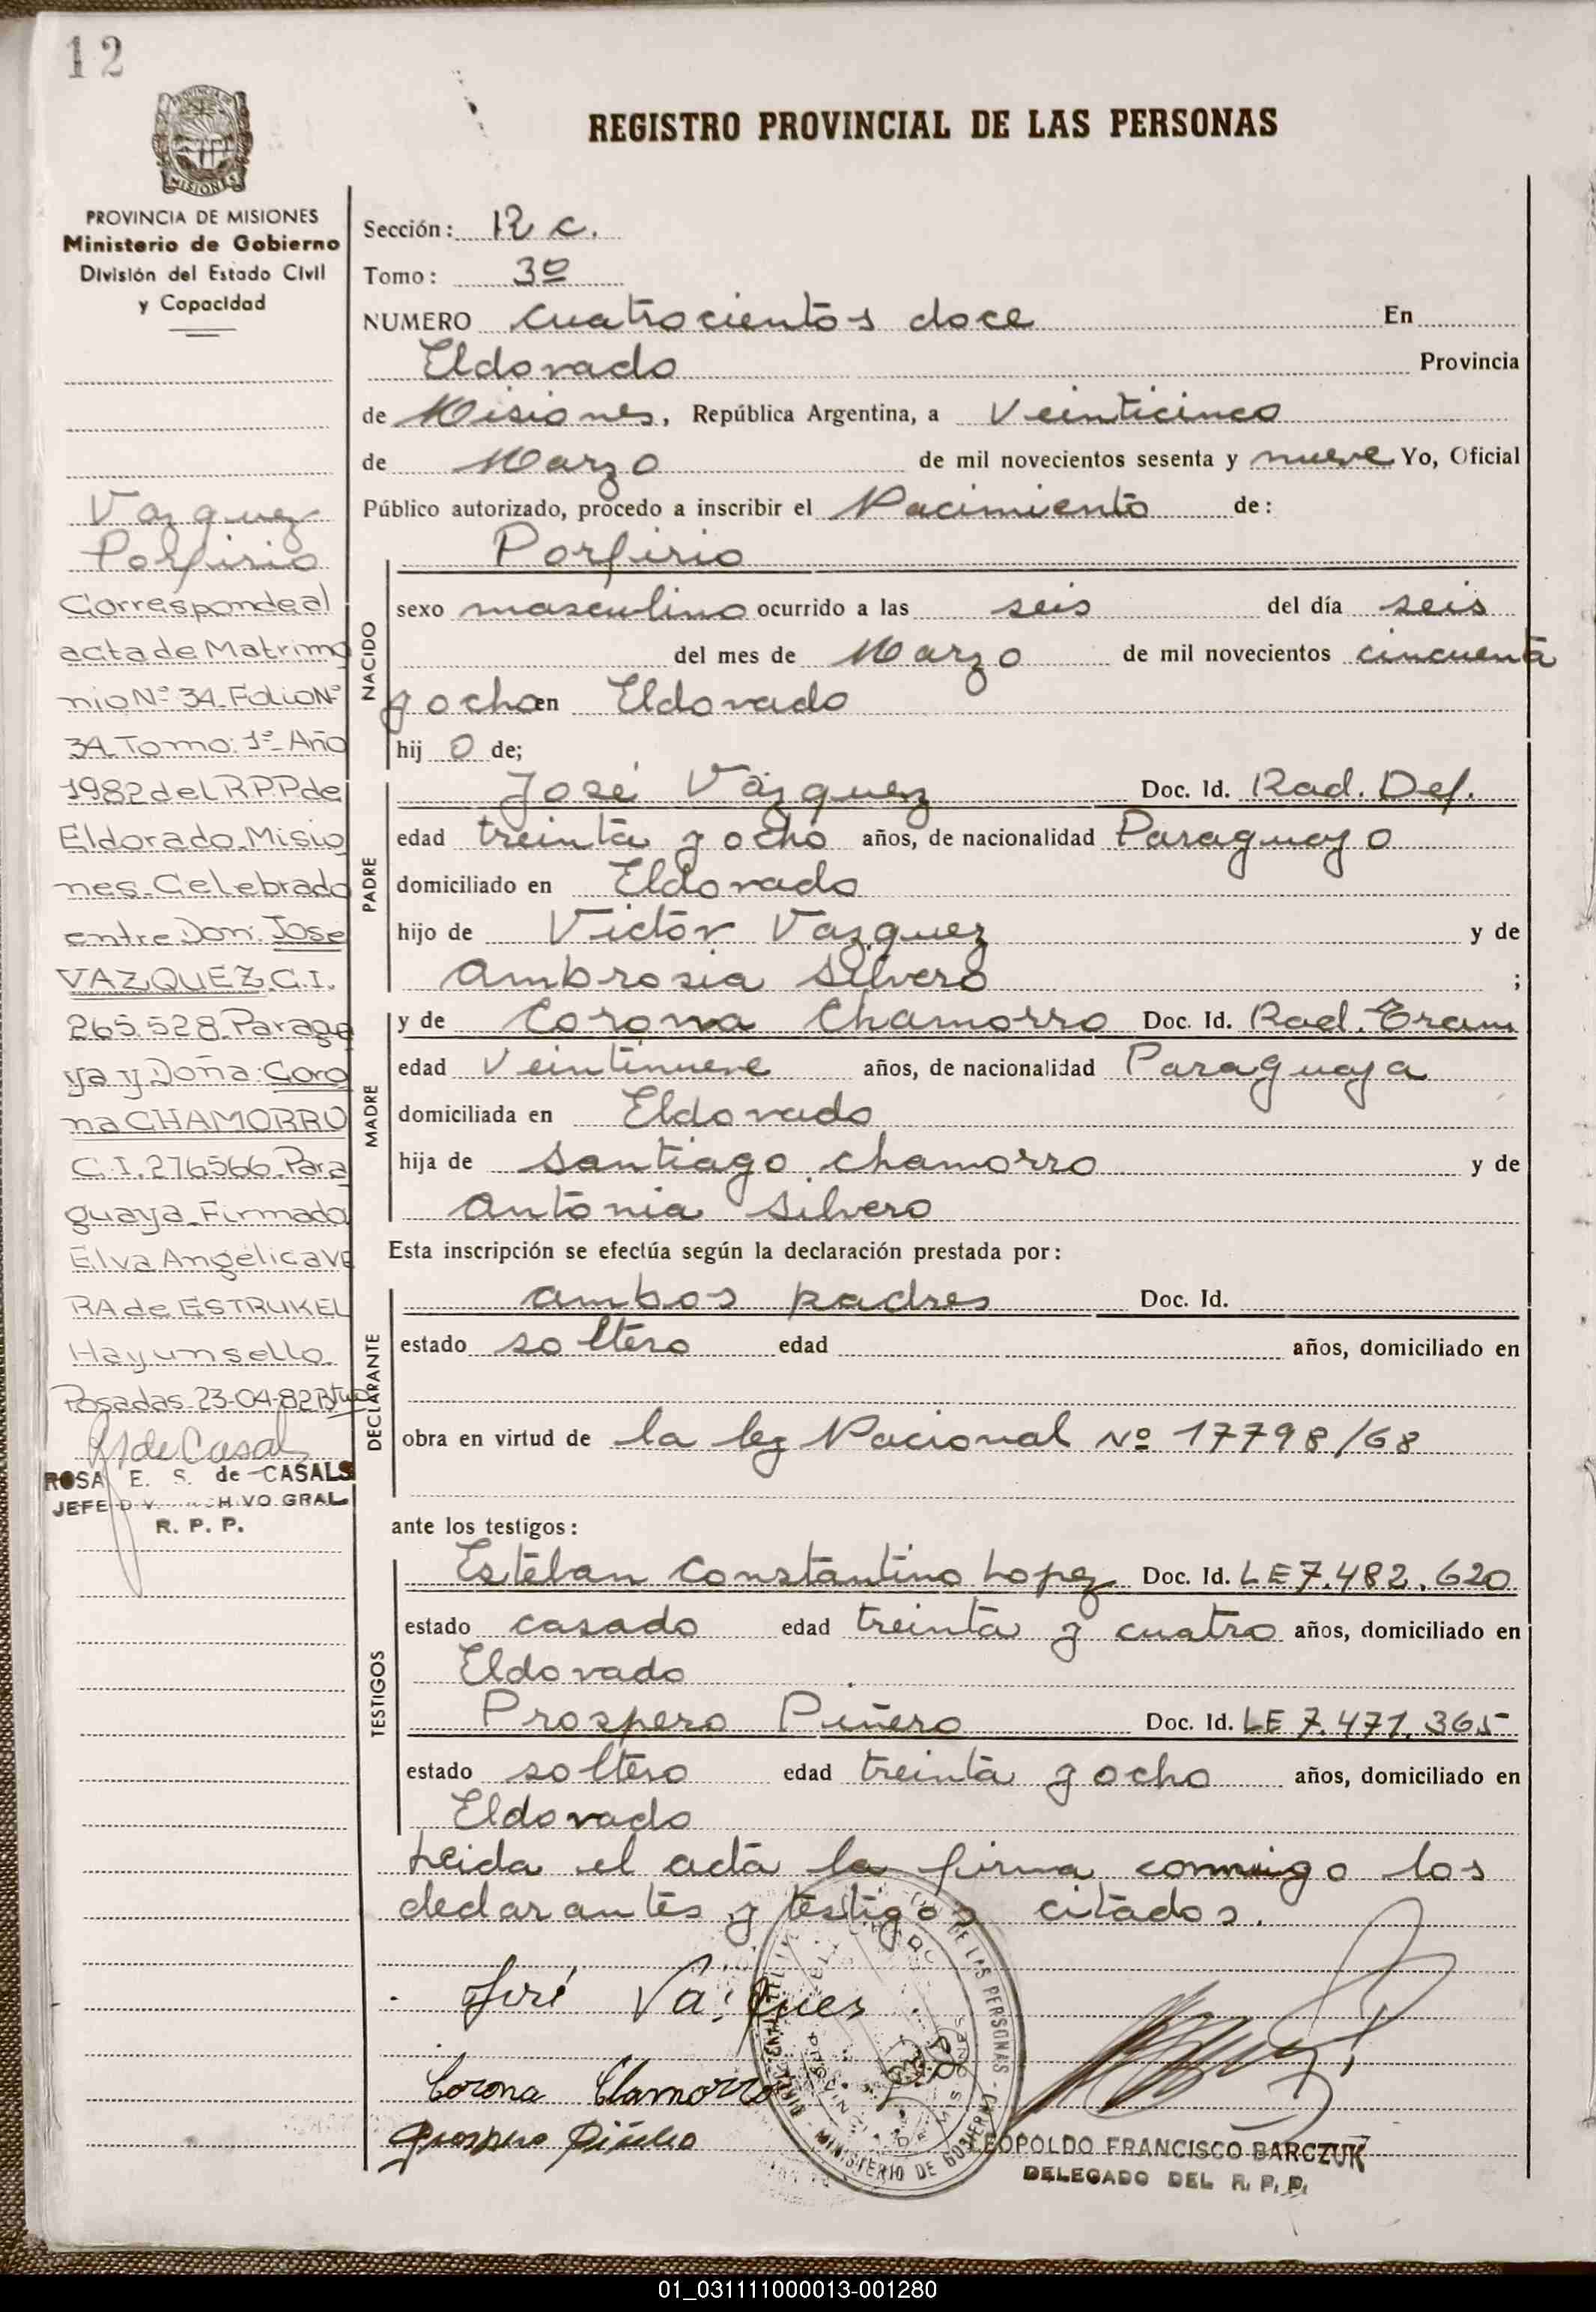 12
REGISTRO PROVINCIAL DE LAS PERSONAS
PROVINCIA DE MISIONES
Ministerio de Gobierno
División del Estado Civil
y Capacidad
Vazquez
Porfirio
Corresponde al
acta de Matrimo
nio Nº 34 Folio Nº
34 Tomo: 1º Año
1982 del R.P.P de
Eldorado Misio
nes. Celebrado
entre Don: José
VAZQUEZ C.I.
265.528 Paragua
ya y Doña: Coro
na CHAMORRO
C.I. 276566 Para
guaya. Firmado
Elva Angélica VE
RA de ESTRUKEL
Hay un sello.
Posadas 23-04-82
R de Casals
ROSA E. S. de CASALS
JEFE DIV. ARCHIVO GRAL.
R. P. P.
Sección: R c.
Tomo: 3º
NUMERO cuatrocientos doce En
Eldorado Provincia
de Misiones, República Argentina, a Veinticinco
de Marzo de mil novecientos sesenta y nueve Yo, Oficial
Público autorizado, procedo a inscribir el Nacimiento de:
Porfirio
NACIDO
sexo masculino ocurrido a las seis del día seis
del mes de Marzo de mil novecientos cincuenta
y ocho en Eldorado
hij o de;
PADRE
José Vázquez Doc. Id. Rad. Def.
edad treinta y ocho años, de nacionalidad Paraguayo
domiciliado en Eldorado
hijo de Victor Vazquez y de
Ambrosia Silvero ;
MADRE
y de Corona Chamorro Doc. Id. Rad.
edad Veintinueve años, de nacionalidad Paraguaya
domiciliada en Eldorado
hija de Santiago Chamorro y de
Antonia Silvero
Esta inscripción se efectúa según la declaración prestada por:
DECLARANTE
ambos padres Doc. Id.
estado soltero edad años, domiciliado en
obra en virtud de la ley Nacional Nº 17798/68
ante los testigos:
TESTIGOS
Estéban Constantino Lopez Doc. Id. LE 7.482.620
estado casado edad treinta y cuatro años, domiciliado en
Eldorado
Prospero Piñero Doc. Id. LE 7.471.365
estado soltero edad treinta y ocho años, domiciliado en
Eldorado
Leida el acta la firma conmigo los
declarantes y testigos citados.
José Vasques
Corona Chamorro
Prospero Piñero
DE LAS PERSONAS
MINISTERIO DE GOBIERNO
LEOPOLDO FRANCISCO BARCZUK
DELEGADO DEL R. P. P.
01_031111000013-001280